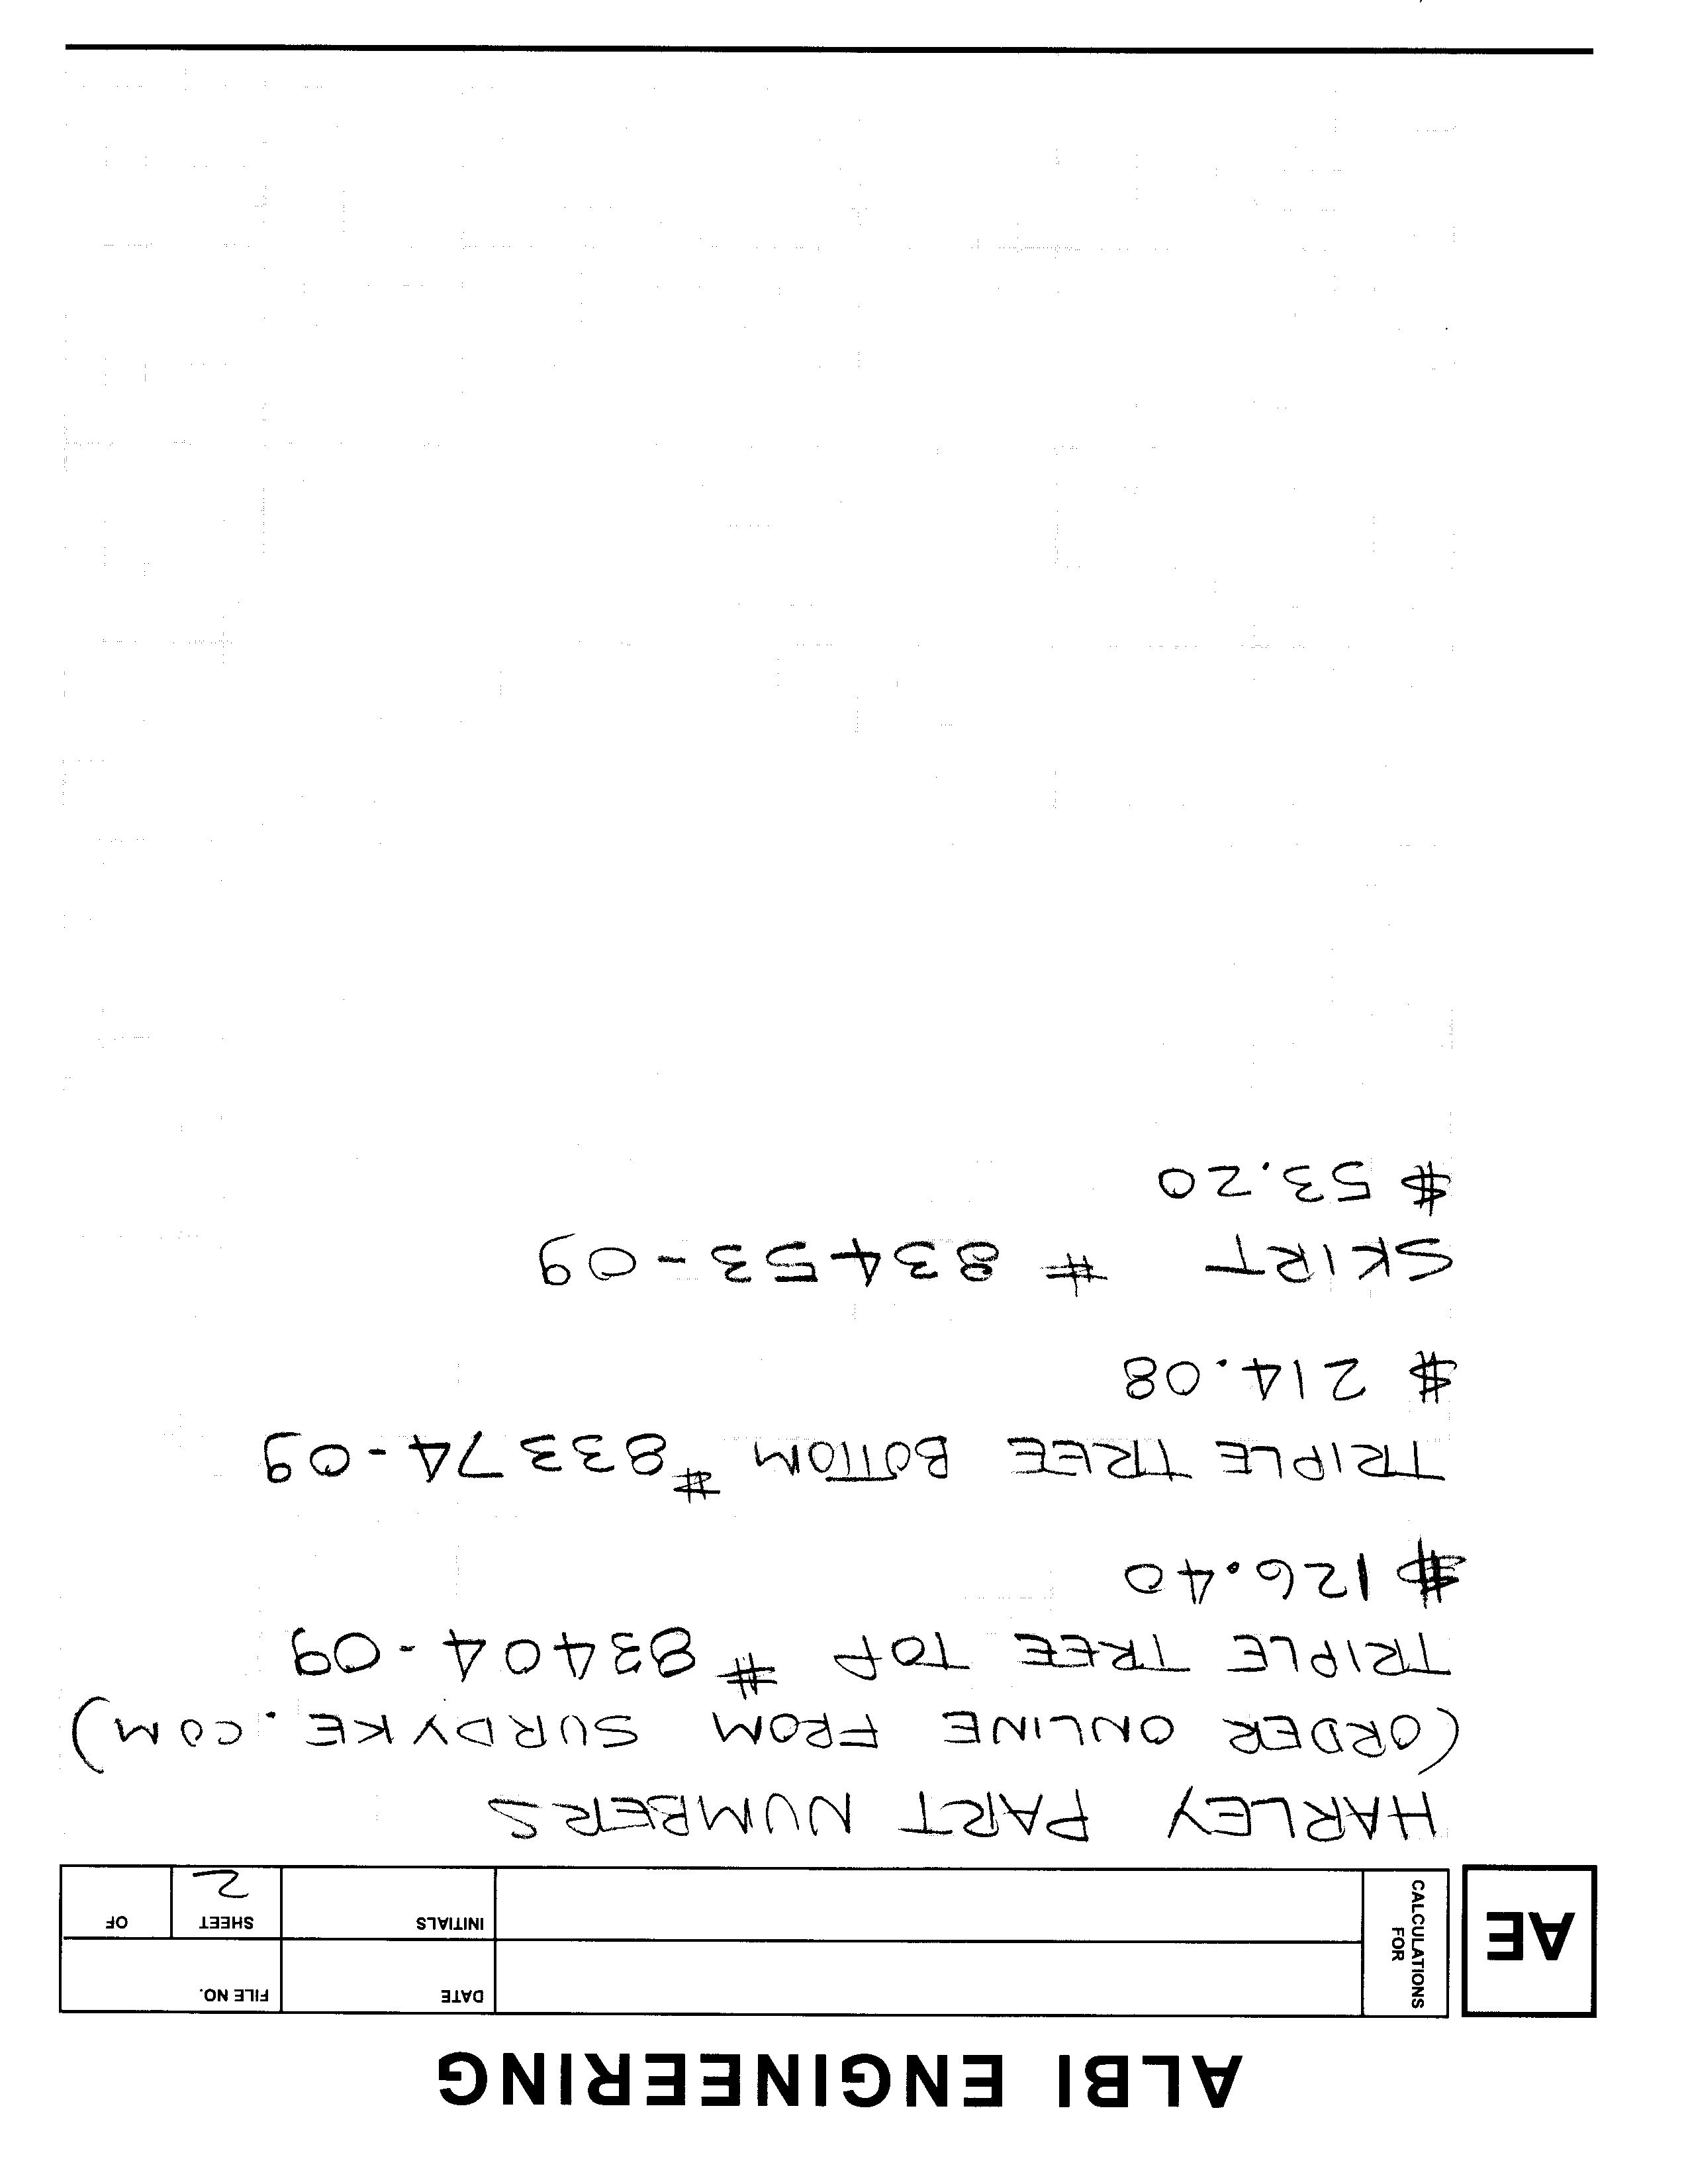 ALBI ENGINEERING
AE
CALCULATIONS
FOR
DATE
FILE NO.
INITIALS
SHEET
2
OF
HARLEY PART NUMBERS
(ORDER ONLINE FROM SURDYKE.COM)
TRIPLE TREE TOP # 83404-09
$126.40
TRIPLE TREE BOTTOM #83374-09
$ 214.08
SKIRT # 83453-09
$ 53.20